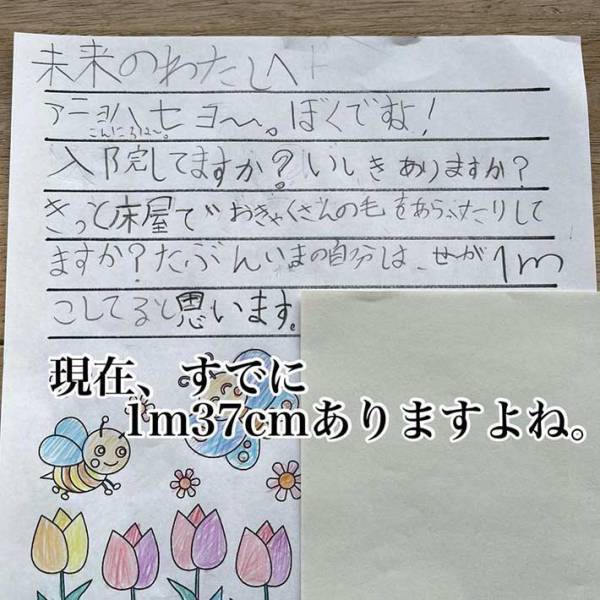 未来のわたしへ
アニョハセヨ〜。ぼくですよ!
こんにちは〜。
入院してますか?いしきありますか?
きっと床屋でおきゃくさんの毛をあらったりして
ますか?たぶんいまの自分は、せが1m
こしてると思います。
現在、すでに
1m37cmありますよね。